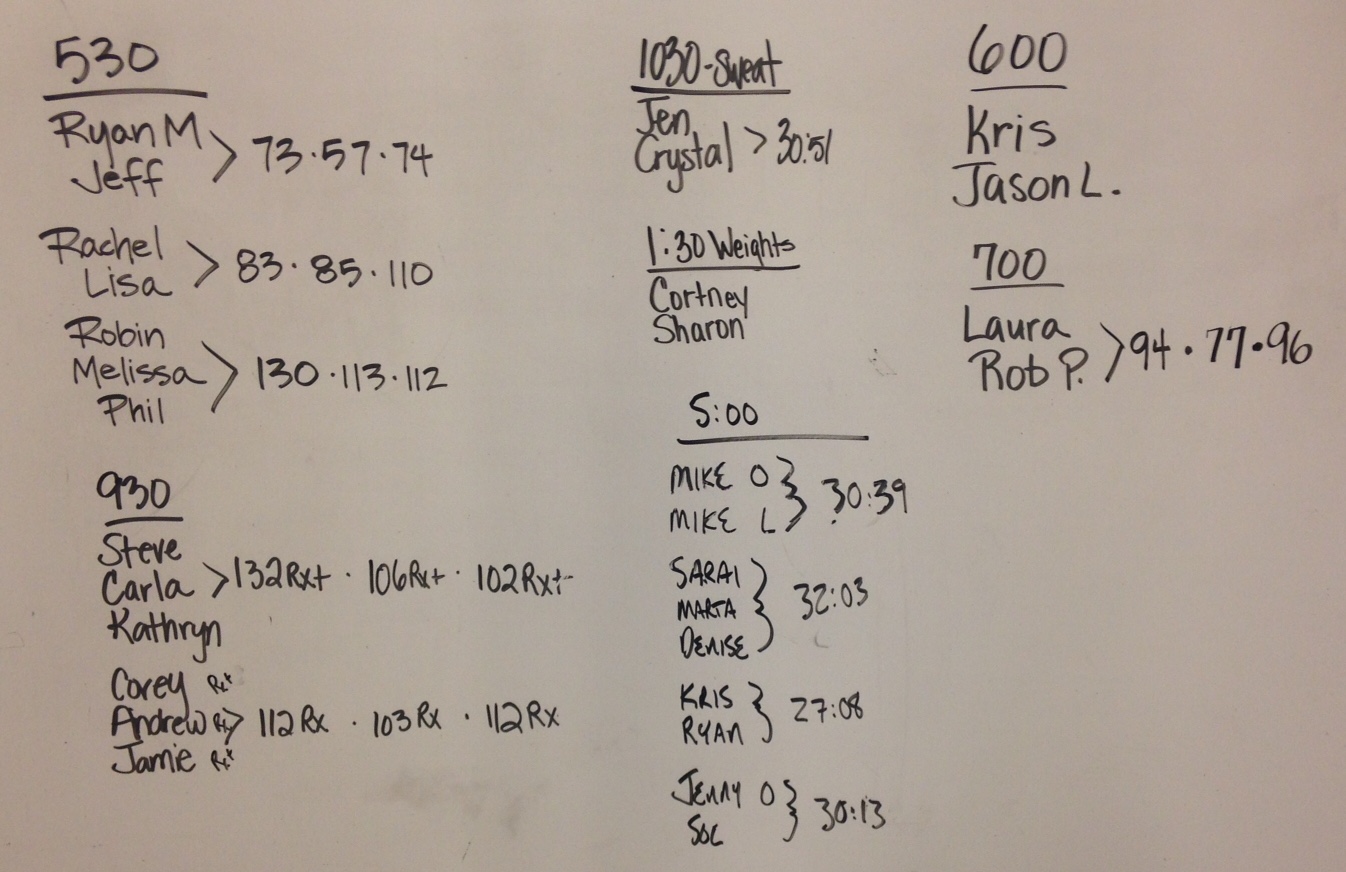 530
Ryan M
Jeff
> 73·57·74
Rachel
Lisa
> 83·85·110
Robin
Melissa
Phil
> 130·113·112
930
Steve
Carla
Kathryn
> 132Rx+ · 106Rx+ · 102Rx+
Corey Rx+
Andrew Rx+
Jamie Rx+
> 112Rx · 103Rx · 112Rx
1030-Sweat
Jen
Crystal
> 30:51
1:30 Weights
Cortney
Sharon
5:00
MIKE O
MIKE L
} 30:39
SARAI
MARTA
DENISE
} 32:03
KRIS
RYAN
} 27:08
JENNY O
SOL
} 30:13
600
Kris
Jason L.
700
Laura
Rob P.
> 94·77·96